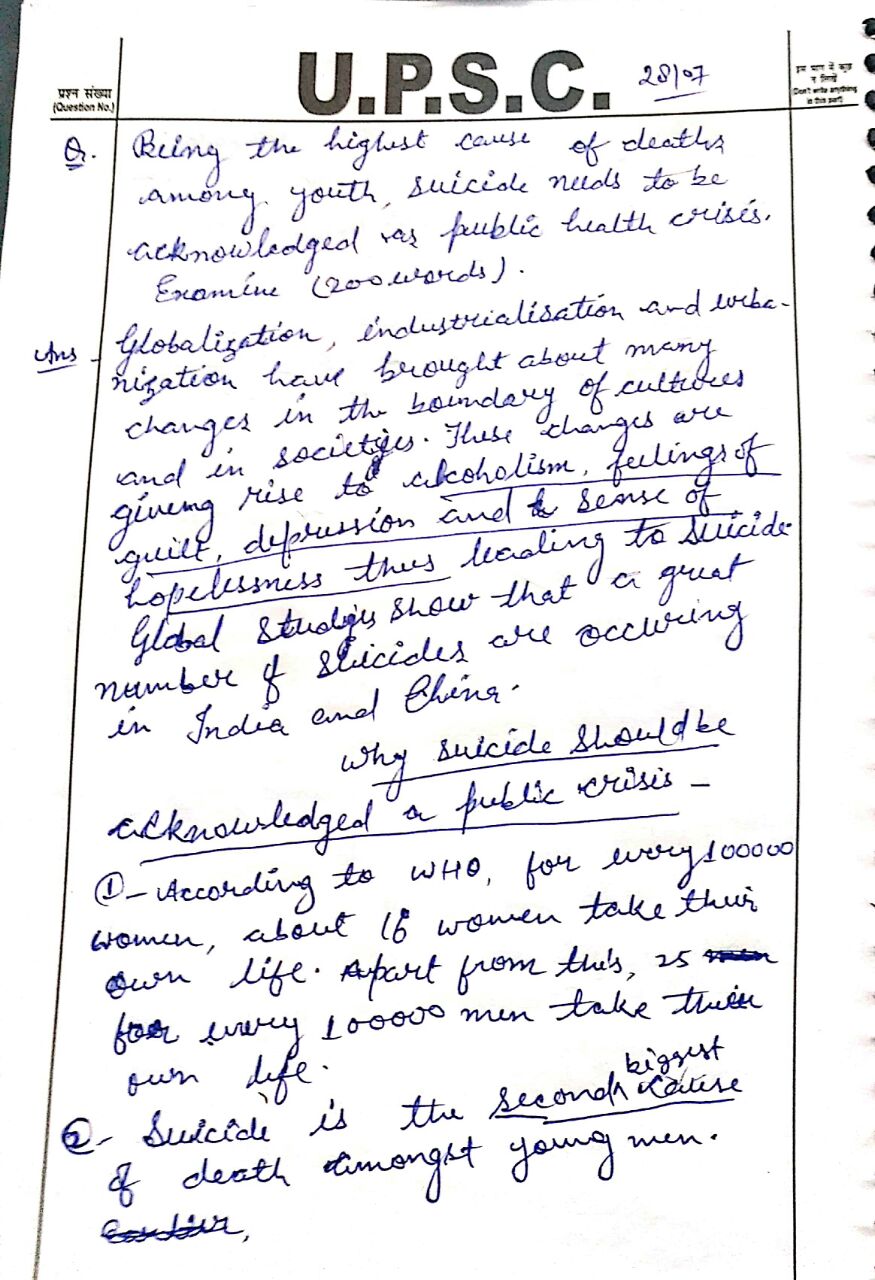 प्रश्न संख्या
(Question No.)
U.P.S.C.
28/07
इस भाग में कुछ
न लिखें
(Don't write anything
in this part)
Q. Being the highest cause of deaths
among youth, suicide needs to be
acknowledged as public health crisis.
Examine (200 words).
Ans - Globalization, industrialisation and urba-
nization have brought about many
changes in the boundary of cultures
and in societies. These changes are
giving rise to alcoholism, feelings of
guilt, depression and sense of
hopelessness thus leading to suicide.
Global Studies show that a great
number of suicides are occuring
in India and China.
Why suicide should be
acknowledged a public crisis -
① - According to WHO, for every 100000
women, about 16 women take their
own life. Apart from this, 25
for every 100000 men take their
own life.
biggest
② - Suicide is the second cause
of death amongst young men.